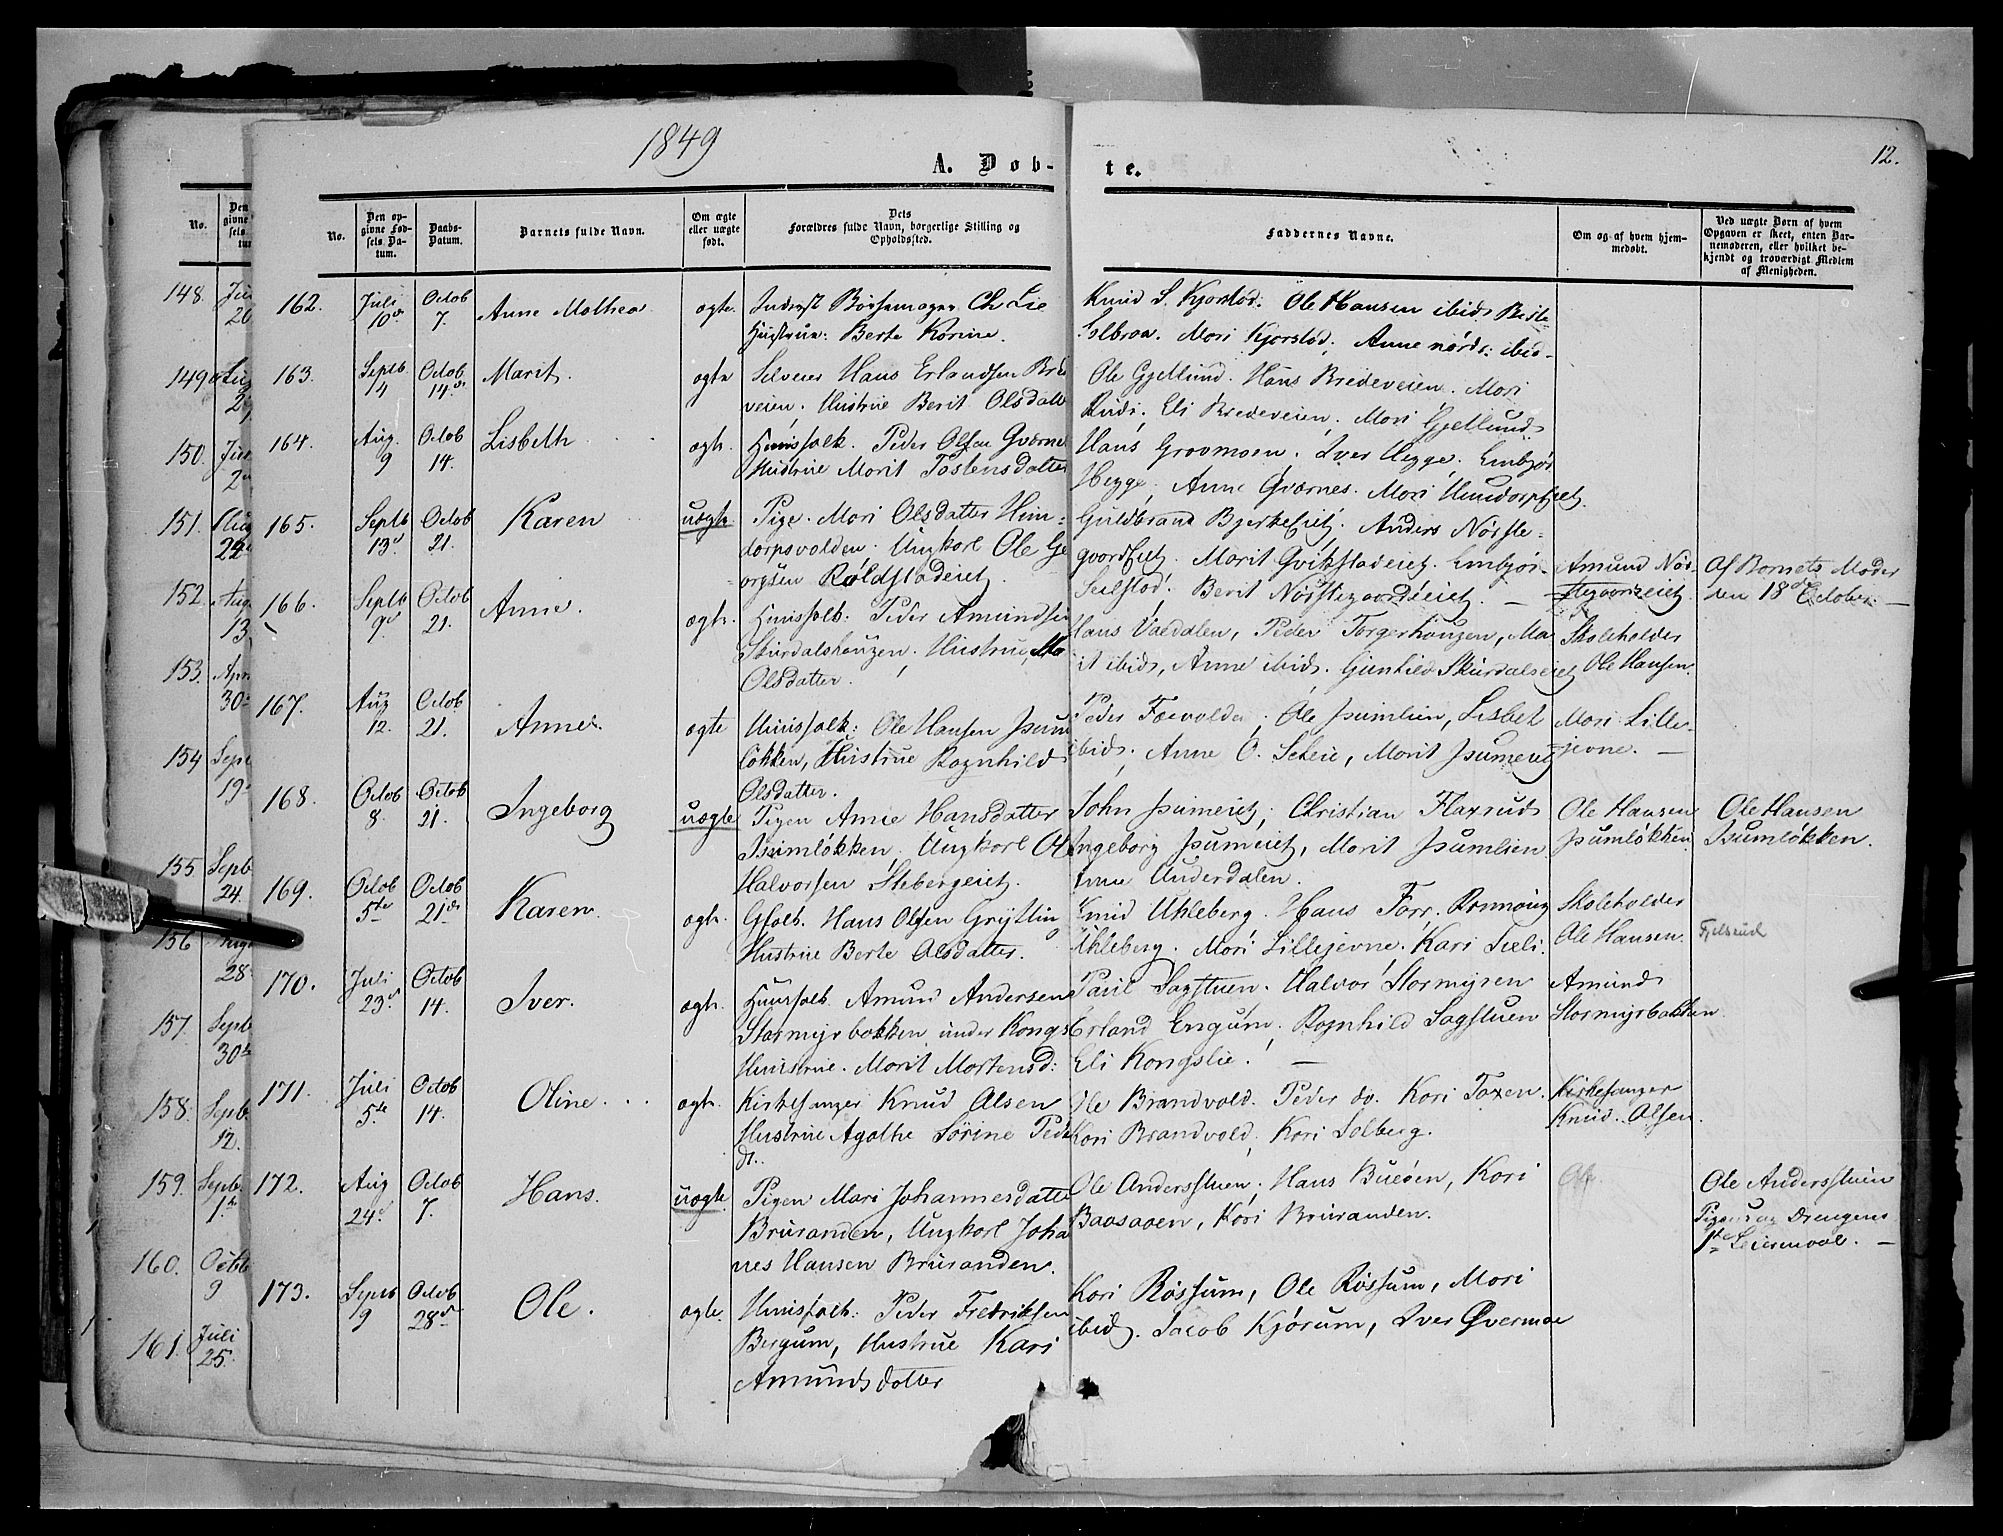 1849
12.
A. Døb-
te.
No.
Den opgivne Fødsels Datum.
Daabs-Datum.
Barnets fulde Navn.
Om ægte eller uægte født.
Dets Forældres fulde Navn, borgerlige Stilling og Opholdssted.
Faddernes Navne.
Om og af hvem hjemmedøbt.
Ved uægte Børn af hvem Opgaven er skeet, enten Barnemoderen, eller hvilket bekjendt og troværdigt Medlem af Menigheden.
162. Juli 10de Octob 7. Anne Mathea ægte. Inderst Bøssemager Ch Lie
Hustrue: Berte Karine.
Knud S. Kjorstad. Ole Hansen ibid.
Solbraa. Mari Kjorstad. Anne ibid.
163. Septb 14 Octob 14de Marit. ægte Selveier Hans Erlandsen Brede
veien. Hustrue Berit Olsdatt
Ole Gjetlund. Hans Bredeveien. Mari
Rudi. Eli Bredeveien. Mari Gjetlund
164. Aug. 9 Octob 14. Lisbeth ægte. Huusfolk. Peder Olsen Qværne
Hustrue Marit Tostensdatter
Hans Gravmoen. Iver Hegge. Embjør
Hegge. Anne Qværnes. Mari Hundorpeiet.
165. Septb 13d Octob 21. Karen uægte. Pige. Mari Olsdatter Hun-
dorpsvolden. Ungkarl Ole Ge
orgsen Roldstadeiet.
Guldbrand Bjerkeeiet. Anders Nørste-
gaardseiet. Marit Qvikstadeiet. Embjør
Seilstad. Berit Nørstegaardseiet.
Amund Nør-
stegaardseiet.
Af Barnets Moder
den 18de October.
166. Septb 9d Octob 21. Anne. ægte. Huusfolk. Peder Amundsen
Skurdalshaugen. Hustrue, Ma
Olsdatter.
Hans Vaedalen, Peder Torgerhaugen, Ma
it ibid, Anne ibid. Gunhild Skurdalseiet
Skoleholder
Ole Hansen.
167. Aug 12. Octob 21. Anne. ægte Huusfolk: Ole Hansen Isum
løkken, Hustrue Ragnhild
Olsdatter.
Peder Ole Isumlien, Lisbet
ibid. Anne O. Scheie, Marit Isumeiet
Mari Lille-
jevne.
168. Octob 8. Octob 21. Ingeborg uægte Pigen Anne Hansdatter
Isumløkken. Ungkarl Ole
Halvorsen Stebergeiet.
John Isumeiet, Christian Flaxrud
Ingeborg Isumeiet, Marit Isumlien
Anne Underdalen.
Ole Hansen
Isumløkken
Ole Hansen
Isumløkken.
169. Octob 5te Octob 21de Karen. ægte. Gfolk. Hans Olsen Gryttin
g
Hustrue Berte Olsdatter.
Knud Uhleberg. Hans Forr. Rønnaug
Uhleberg. Mari Lillejevne. Kari Sæli.
Skoleholder
Ole Hansen.
Fjelsrud
170. Juli 23d Octob 14. Iver. ægte. Huusfolk Amund Andersen
Stormyrbakken under Kongs
Hustrue. Marit Mortensd:
Paul Sagstuen. Halvor Stormyren
Erland Engum. Ragnhild Sagstuen
Eli Kongslie.
Amund
Stormyrbakken
171. Juli 5te Octob 14. Oline. ægte. Kirkesanger Knud Olsen
Hustrue Agathe Sørine Peder
dt.
Ole Brandvold. Peder do. Kari Toxen.
Kari Brandvold. Kari Solberg.
Kirkesanger
Knud Olsen.
172. Aug 24d Octob 7. Hans. uægte. Pigen Mari Johannesdatte
Bruranden, Ungkarl Joha
nes Hansen Bruranden.
Ole Andersstuen. Hans Bueøen, Kari
Baasaaen, Kari Bruranden.
Ole Andersstuen
Pigens og Drengens
1te Leiermaal.
173. Septb 19 Octob 28de Ole. ægte. Huusfolk. Peder Fredriksen
Bergum, Hustrue Kari
Amundsdatter
Kari Røssum, Ole Røssum, Mari
ibid. Jacob Kjørum, Iver Øvermoe
No.
148.
149
150.
151.
152.
153.
154
155
156
157.
158.
159.
160.
161. Juli 25.